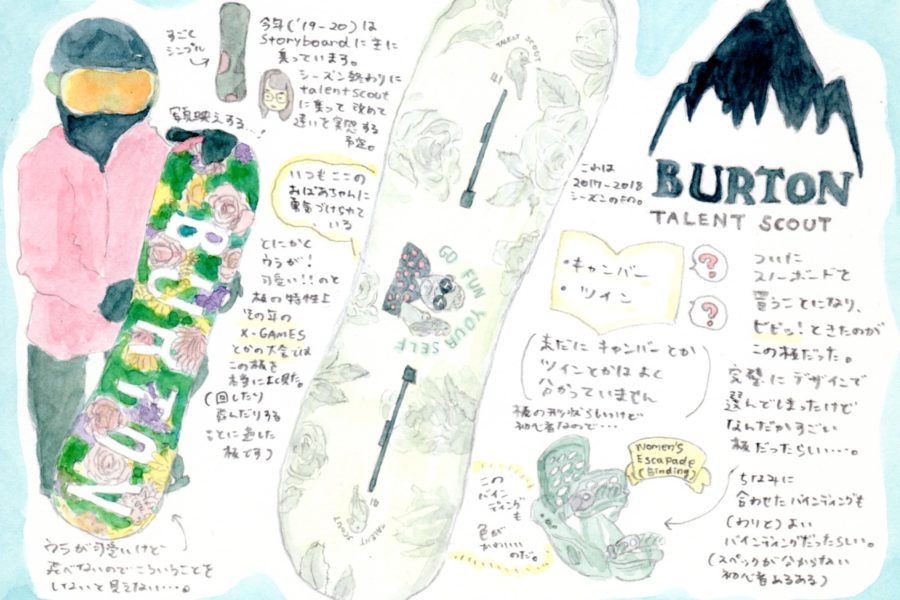 すごく
シンプル
今年('19-20)は
Storyboardにまに
乗っています。
シーズン終わりに
talent scout
に乗って改めて
違いを実感する
予定。
写真映えする…!
いつもここの
おばあちゃんに
勇気づけられて
いる
とにかく
ウラが!
可愛い!!のと
板の特性上
その年の
X-GAMES
とかの大会では
この板を
本当によく見た。
(回したり
飛んだりする
ことに適した
板です)
BURTON
ウラが可愛いけど
飛べないのでこういうことを
しないと見えない…。
TALENT SCOUT
GO FUN
YOURSELF
TALENT
SCOUT
これは
2017-2018
シーズンのもの。
BURTON
TALENT SCOUT
・キャンバー
・ツイン
?
?
(まだにキャンバーとか
ツインとかはよく
分かっていません)
板の形状らしいけど
初心者なので…
ついに
スノーボードを
買うことになり、
ビビッ!ときたのが
この板だった。
完璧にデザインで
選んでしまったけど
なんだかすごい
板だったらしい…。
Women's
Escapade
(Binding)
この
バイン
ディングも
色が
かわいい
のだ。
ちなみに
合わせたバインディングも
(わりと)よい
バインディングだったらしい。
(スペックが分からない
初心者あるある)